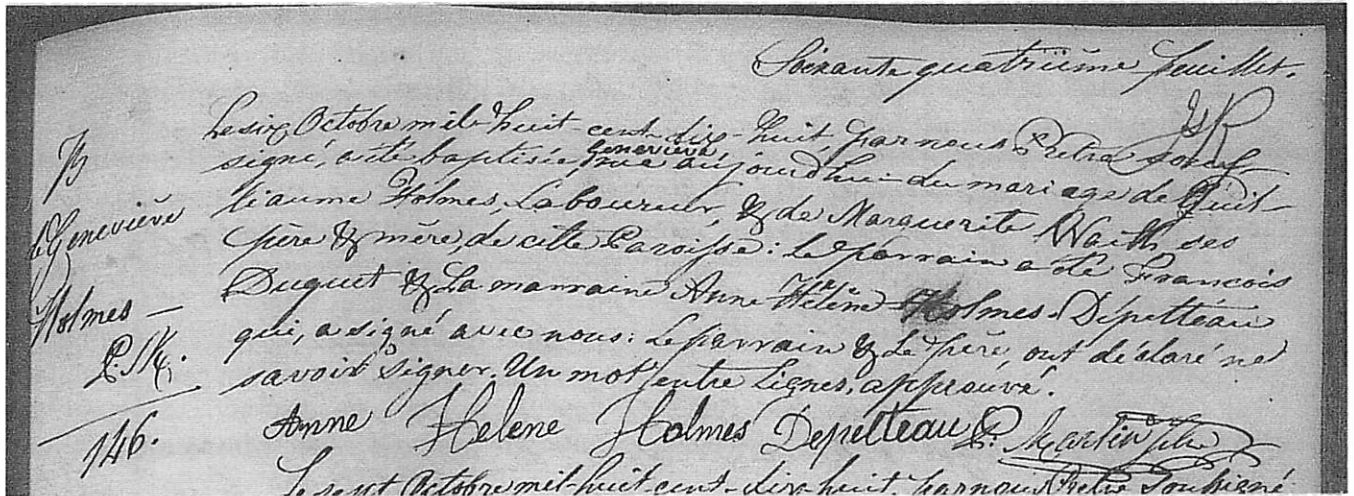 Soixante quatriième feuillet.
JsR
B
Geneviève
Holmes —
146.
Le six Octobre mil-huit-cent-dix-huit, par nous Prêtre sous-
signé, a été baptisée Geneviève, née aujourdhui du mariage de Guil-
liaume Holmes, Laboureur, & de Marguerite Waith ses
père & mère, de cette Paroisse : Le parrain a été Francois
Duquet & La marraine Anne Hélène Holmes Dépelteau
qui, a signé avec nous : Le parrain & Le père, ont déclaré ne
savoir signer. Un mot entre Lignes, approuvé.
Anne Helene Holmes Depelteau P. Martin Ptre
Le sept Octobre mil-huit-cent-dix-huit, par nous Prêtre Soussigné